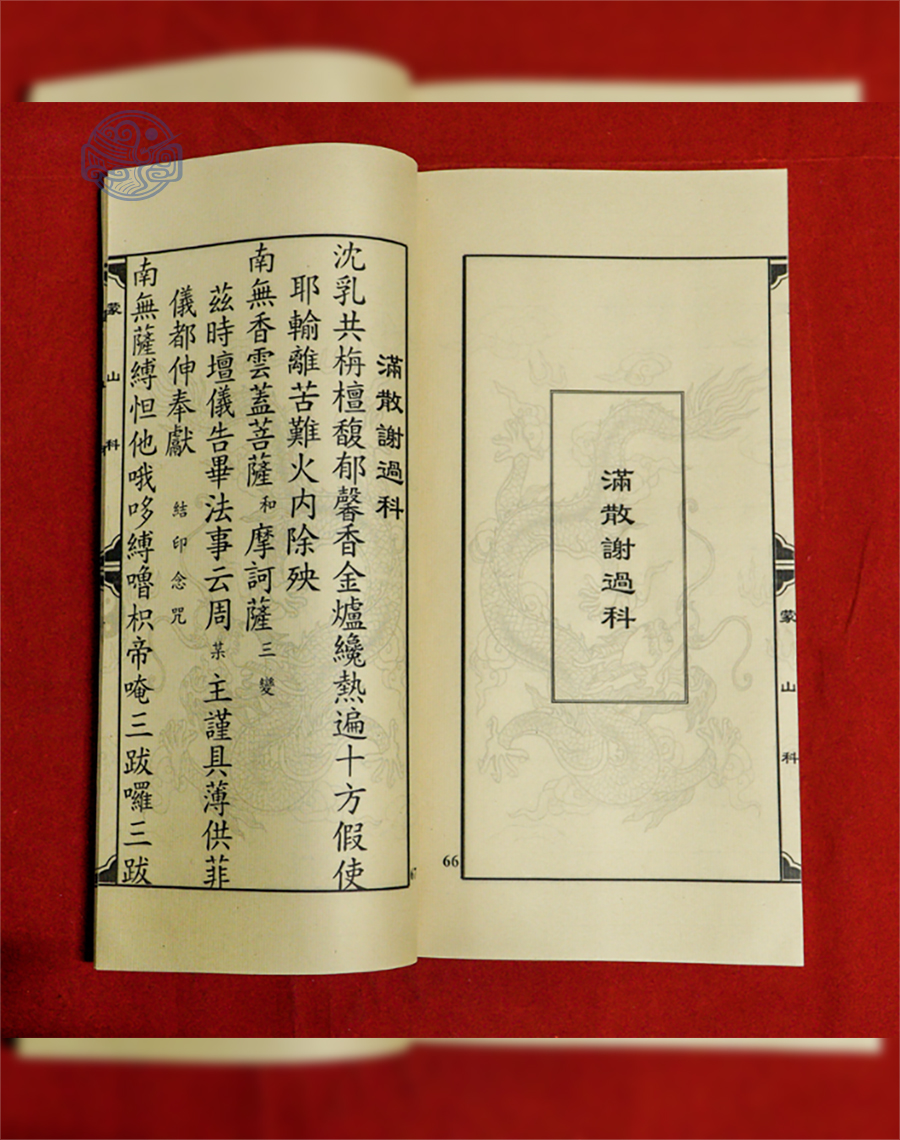 蒙山科
滿散謝過科
66
滿散謝過科
沈乳共栴檀馥郁馨香金爐纔熱遍十方假使
耶輸離苦難火内除殃
南無香雲蓋菩薩 和 摩訶薩 三變
茲時壇儀告畢法事云周 某 主謹具薄供菲
儀都伸奉獻 結印念咒
南無薩縛怛他哦哆縛嚕枳帝唵三跋囉三跋
蒙山科